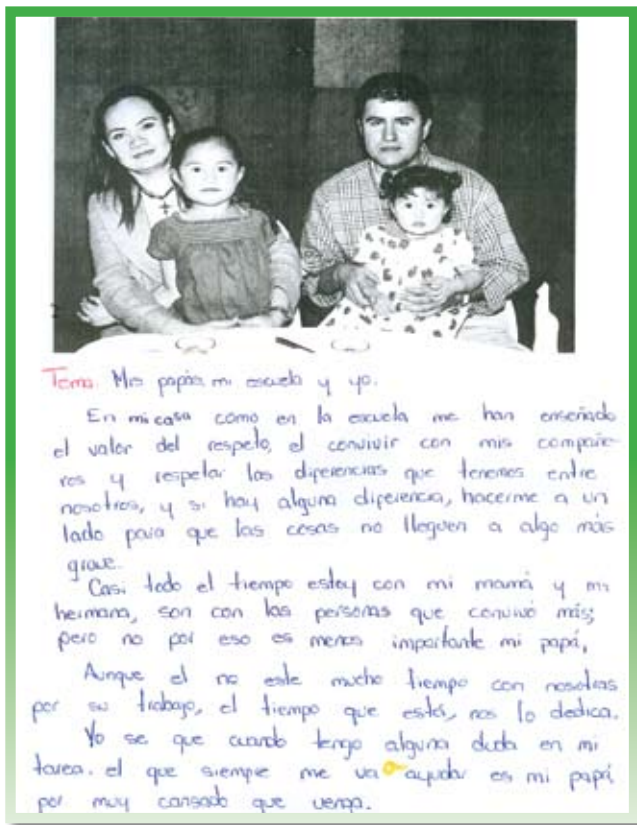 Tema. Mis papás, mi escuela y yo.
En mi casa como en la escuela me han enseñado
el valor del respeto, el convivir con mis compañe-
ros y respetar las diferencias que tenemos entre
nosotros, y si hay alguna diferencia, hacerme a un
lado para que las cosas no lleguen a algo más
grave.
Casi todo el tiempo estoy con mi mamá y mi
hermana, son con las personas que convivo más;
pero no por eso es menos importante mi papá,
Aunque el no este mucho tiempo con nosotras
por su trabajo, el tiempo que está, nos lo dedica.
Yo se que cuando tengo alguna duda en mi
tarea. el que siempre me va a ayudar es mi papá
por muy cansado que venga.